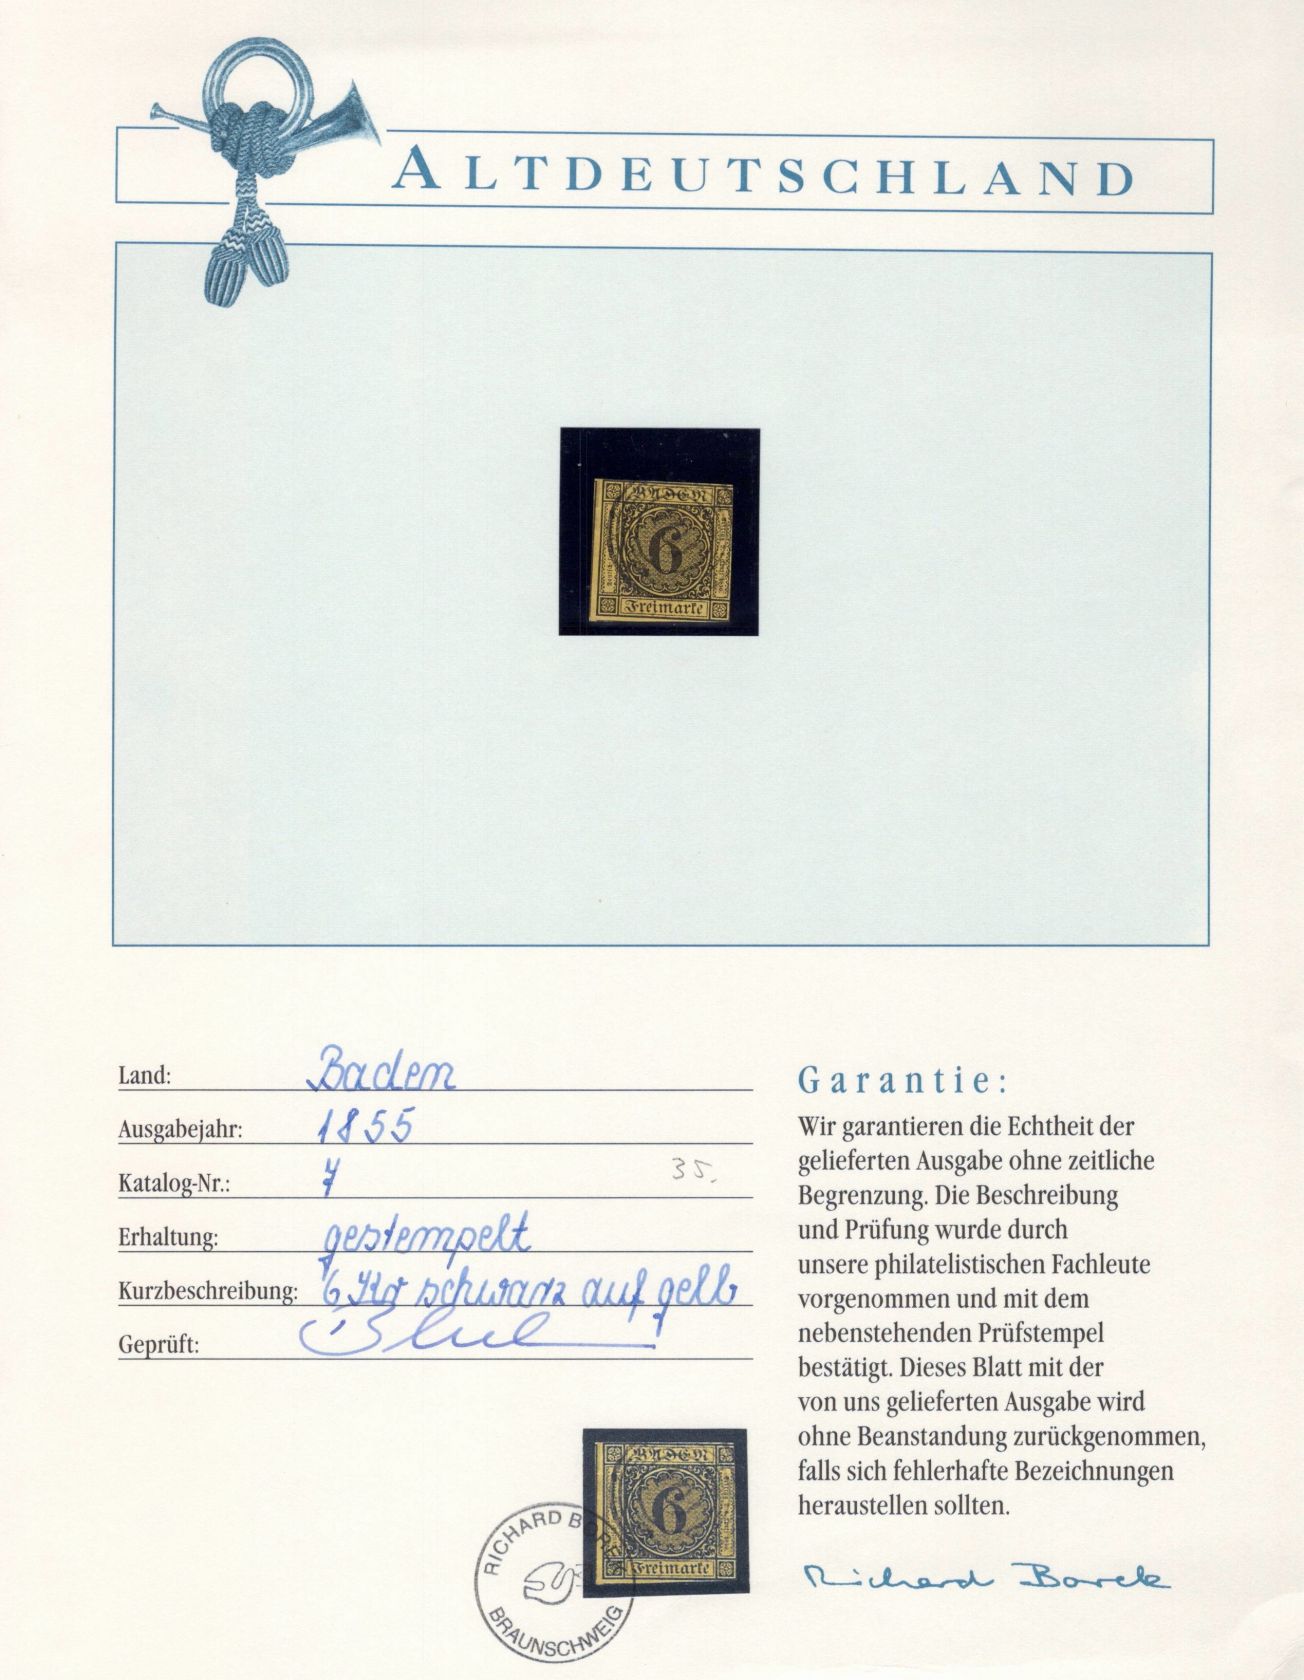 ALTDEUTSCHLAND
BADEN
6
Freimarke
Land: Baden
Ausgabejahr: 1855
Katalog-Nr.: 7 35.
Erhaltung: gestempelt
Kurzbeschreibung: 6 Kr schwarz auf gelb
Geprüft:
Garantie:
Wir garantieren die Echtheit der
gelieferten Ausgabe ohne zeitliche
Begrenzung. Die Beschreibung
und Prüfung wurde durch
unsere philatelistischen Fachleute
vorgenommen und mit dem
nebenstehenden Prüfstempel
bestätigt. Dieses Blatt mit der
von uns gelieferten Ausgabe wird
ohne Beanstandung zurückgenommen,
falls sich fehlerhafte Bezeichnungen
heraustellen sollten.
Richard Borek
BADEN
6
Freimarke
RICHARD BOREK
BRAUNSCHWEIG